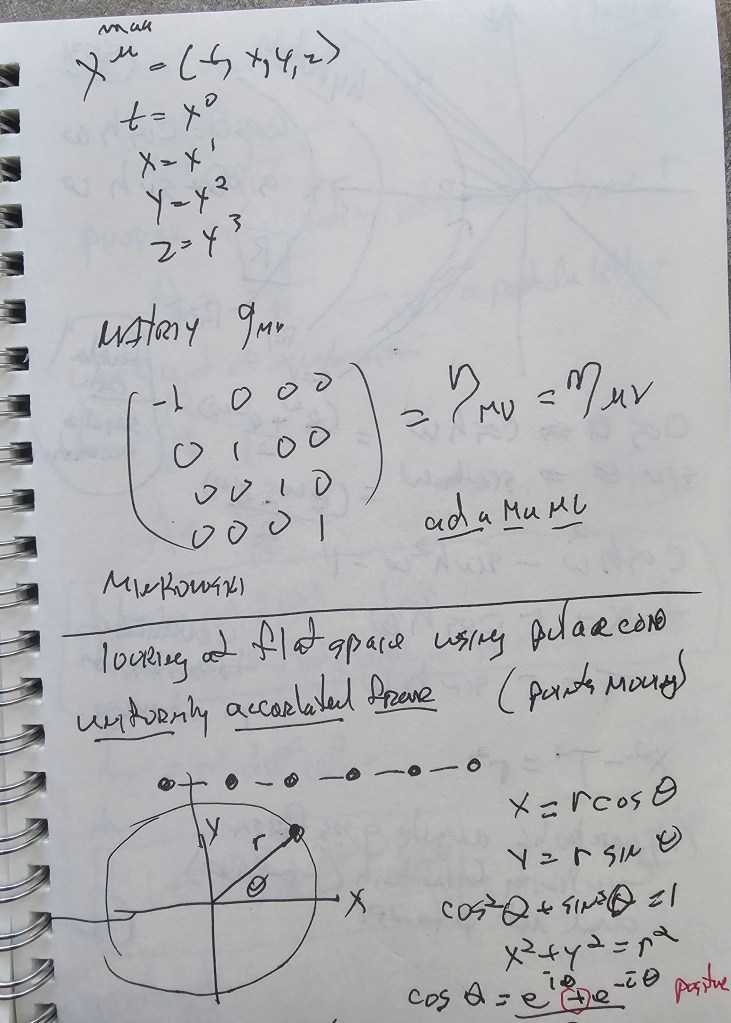 mau
X^μ = (t, x, y, z)
t = x^0
x = x^1
y = x^2
z = x^3
g_μν
-1 0 0 0
0 1 0 0
0 0 1 0
0 0 0 1
= η_μν = η_μν
Minkowski
looking at flat space using polar coord
uniformly frame (points moving)
x = r cos θ
y = r sin θ
y
r
θ
x
cos²θ + sin²θ = 1
x² + y² = r²
cos θ = e^iθ + e^-iθ positive